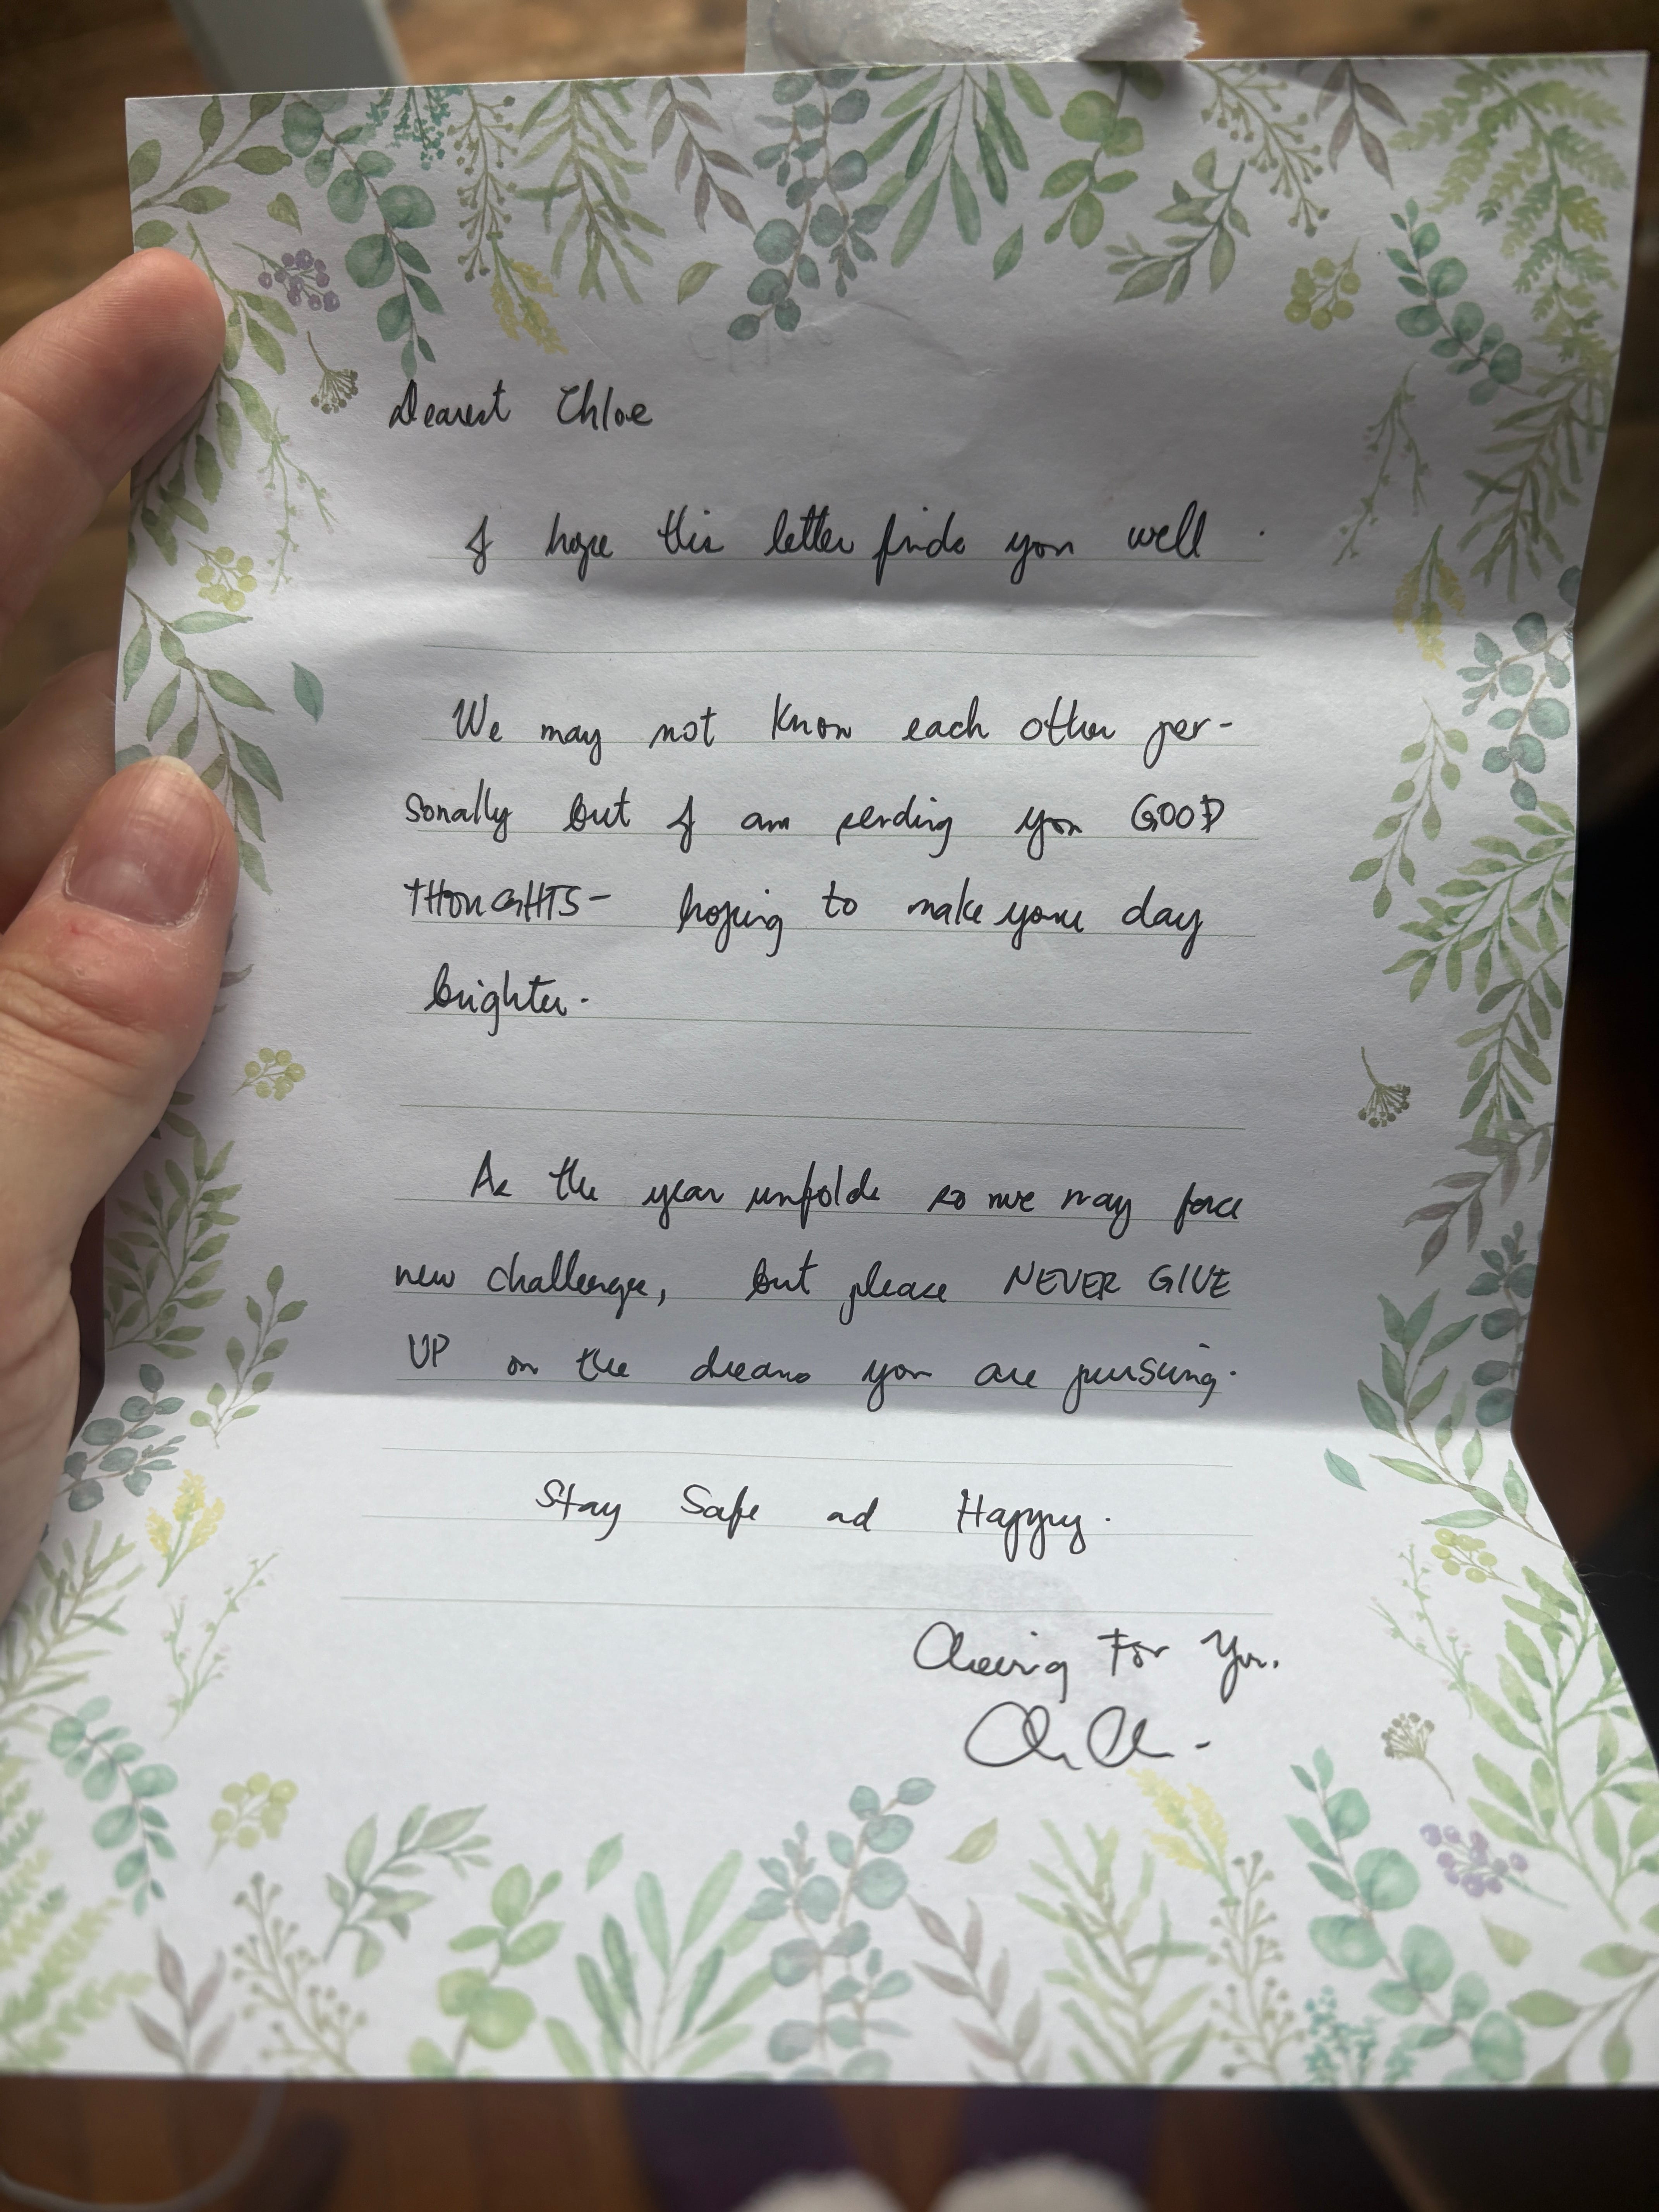 Dearest Chloe
I hope this letter finds you well.
We may not know each other per-
sonally but I am sending you GOOD
THOUGHTS- hoping to make your day
brighter.
As the year unfolds so we may face
new challenges, but please NEVER GIVE
UP on the dreams you are pursuing.
Stay Safe ad Happy.
Cheering For You,